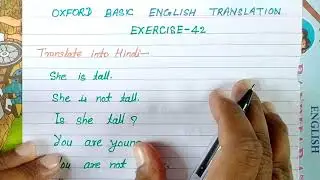 OXFORD BASIC ENGLISH TRANSLATION
EXERCISE-42
Translate into Hindi—
She is tall.
She is not tall.
Is she tall?
You are young
You are not
ENGLISH